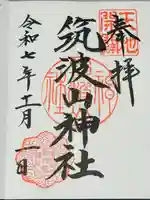 奉拝
筑波山神社
令和七年十一月一日